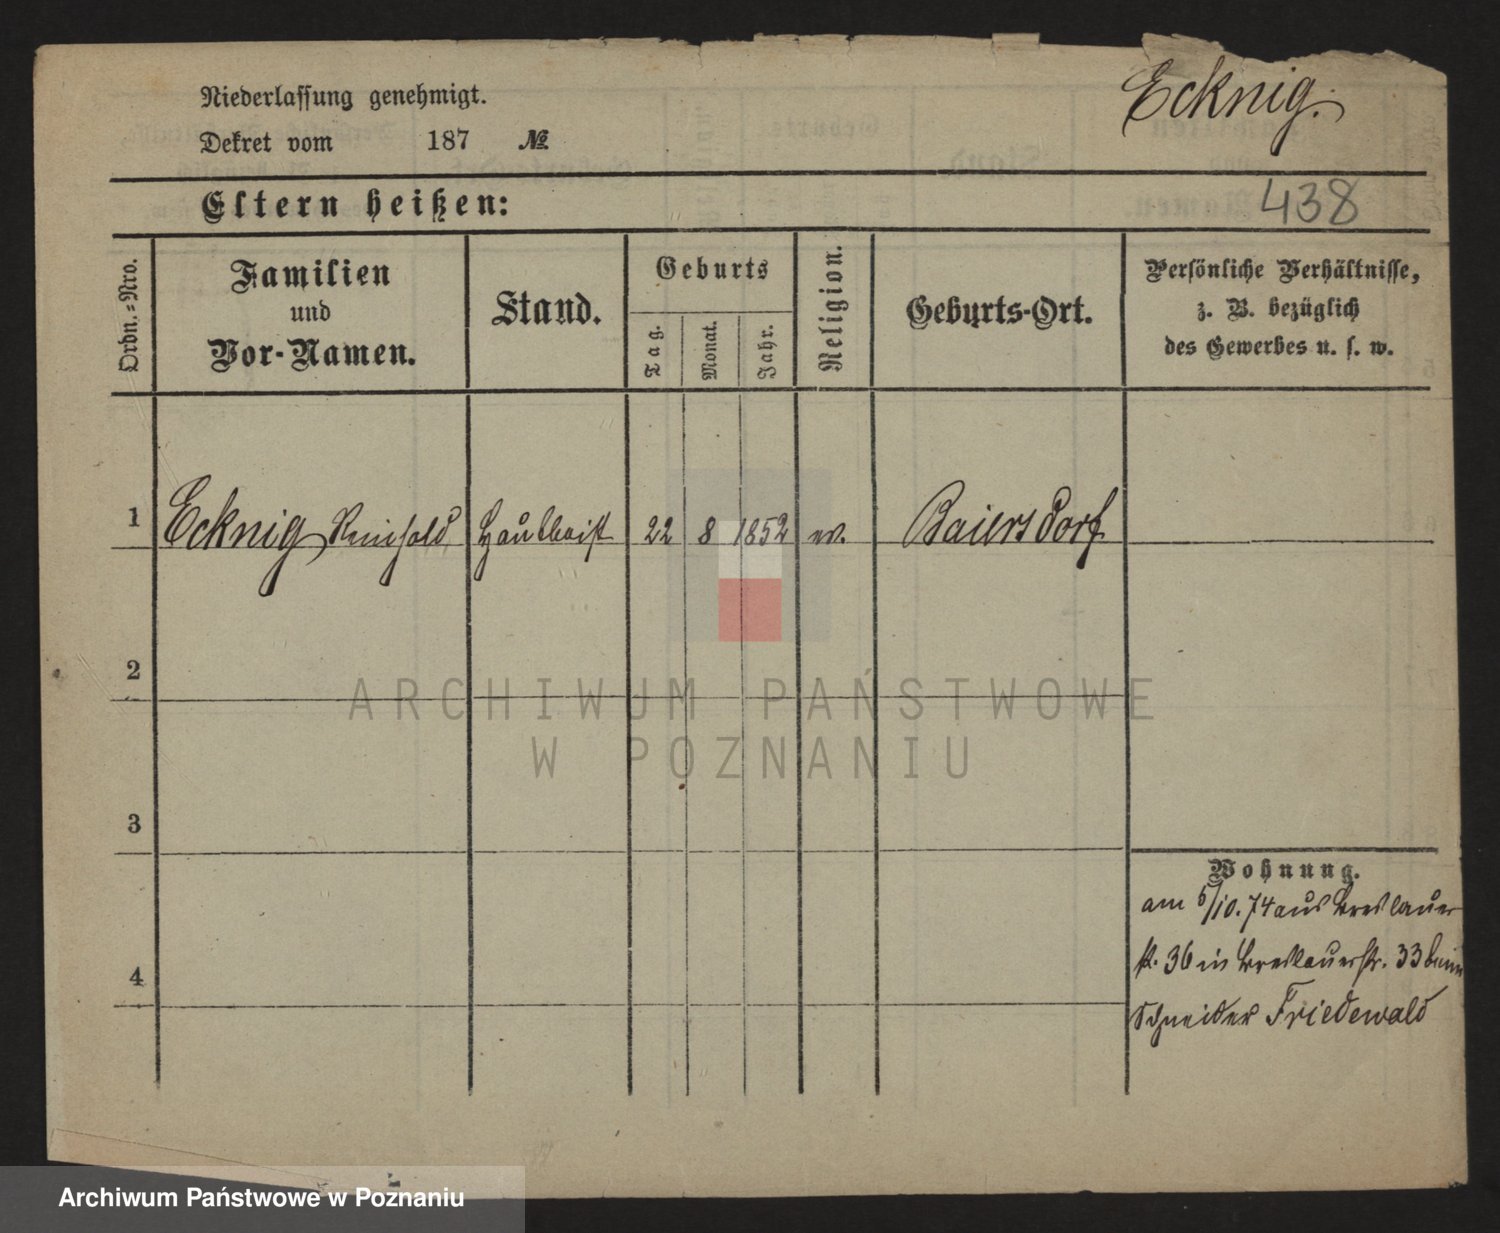 Niederlassung genehmigt.
Ecknig.
Dekret vom 187 №
Eltern heißen:
438
Ordn.-Nro.
Familien
und
Vor-Namen.
Stand.
Geburts
Tag.
Monat.
Jahr.
Religion.
Geburts-Ort.
Persönliche Verhältnisse,
z. B. bezüglich
des Gewerbes u. s. w.
1 Ecknig Reinhold Hautboist 22 8 1852 ev. Baiersdorf
2
ARCHIWUM PAŃSTWOWE
W POZNANIU
3
Wohnung.
am 5/10. 74 aus Breslauer
st. 36 in Breslauerstr. 33 beim
4
Schneider Friedewald
Archiwum Państwowe w Poznaniu